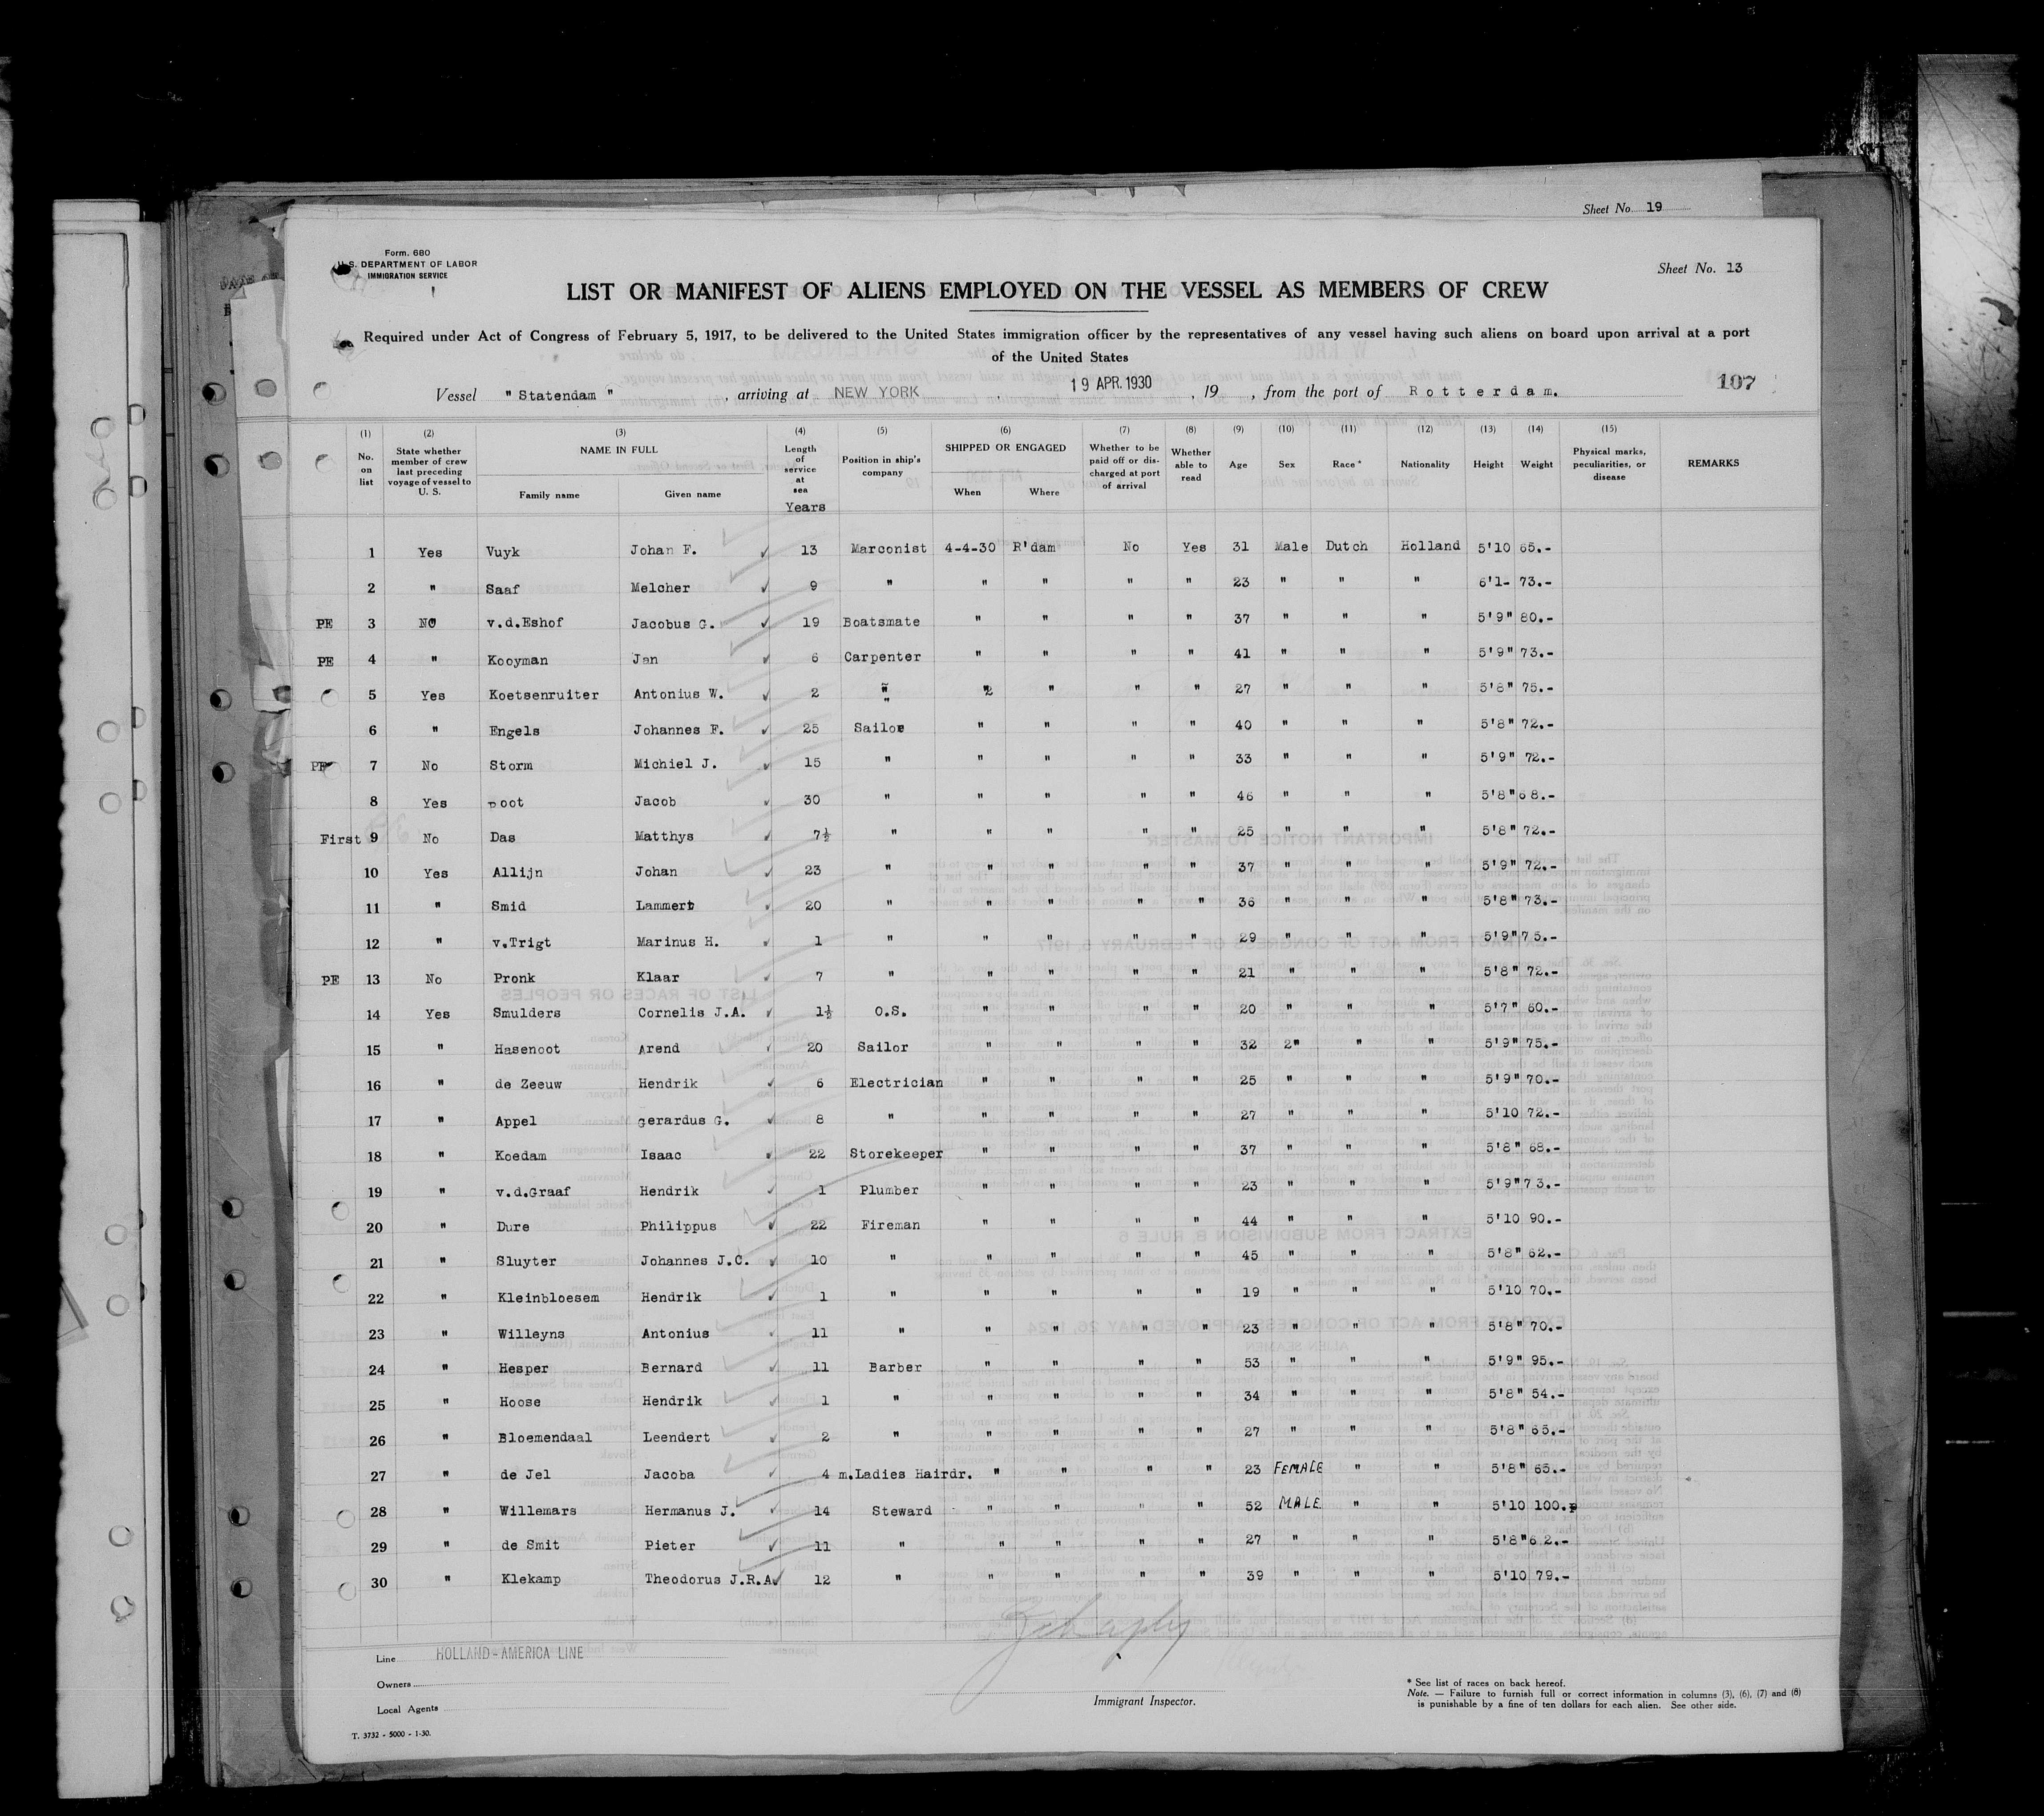 Sheet No. 19
Form. 680
U.S. DEPARTMENT OF LABOR
IMMIGRATION SERVICE
Sheet No. 13
LIST OR MANIFEST OF ALIENS EMPLOYED ON THE VESSEL AS MEMBERS OF CREW
Required under Act of Congress of February 5, 1917, to be delivered to the United States immigration officer by the representatives of any vessel having such aliens on board upon arrival at a port
of the United States
Vessel "Statendam", arriving at NEW YORK, 19 APR. 1930, 19 , from the port of Rotterdam. 107
(1) No. on list (2) State whether member of crew last preceding voyage of vessel to U. S. (3) NAME IN FULL Family name Given name (4) Length of service at sea Years (5) Position in ship's company (6) SHIPPED OR ENGAGED When Where (7) Whether to be paid off or discharged at port of arrival (8) Whether able to read (9) Age (10) Sex (11) Race* (12) Nationality (13) Height (14) Weight (15) Physical marks, peculiarities, or disease REMARKS
1 Yes Vuyk Johan F. 13 Marconist 4-4-30 R'dam No Yes 31 Male Dutch Holland 5'10 65.-
2 " Saaf Melcher 9 " " " " " 23 " " " 6'1- 73.-
PE 3 No v.d.Eshof Jacobus G. 19 Boatsmate " " " " 37 " " " 5'9" 80.-
PE 4 " Kooyman Jan 6 Carpenter " " " " 41 " " " 5'9" 73.-
5 Yes Koetsenruiter Antonius W. 2 " " " " " 27 " " " 5'8" 75.-
6 " Engels Johannes F. 25 Sailor " " " " 40 " " " 5'8" 72.-
PE 7 No Storm Michiel J. 15 " " " " " 33 " " " 5'9" 72.-
8 Yes poot Jacob 30 " " " " " 46 " " " 5'8" 68.-
First 9 No Das Matthys 7½ " " " " " 25 " " " 5'8" 72.-
10 Yes Allijn Johan 23 " " " " " 37 " " " 5'9" 72.-
11 " Smid Lammert 20 " " " " " 36 " " " 5'8" 73.-
12 " v.Trigt Marinus H. 1 " " " " " 29 " " " 5'9" 75.-
PE 13 No Pronk Klaar 7 " " " " " 21 " " " 5'8" 72.-
14 Yes Smulders Cornelis J.A. 1½ O.S. " " " " 20 " " " 5'7" 60.-
15 " Hasenoot Arend 20 Sailor " " " " 32 2" " " 5'9" 75.-
16 " de Zeeuw Hendrik 6 Electrician " " " " 25 " " " 5'9" 70.-
17 " Appel gerardus G. 8 " " " " " 27 " " " 5'10 72.-
18 " Koedam Isaac 22 Storekeeper " " " " 37 " " " 5'8" 68.-
19 " v.d.Graaf Hendrik 1 Plumber " " " " 23 " " " 5'9" 73.-
20 " Dure Philippus 22 Fireman " " " " 44 " " " 5'10 90.-
21 " Sluyter Johannes J.C. 10 " " " " " 45 " " " 5'8" 62.-
22 " Kleinbloesem Hendrik 1 " " " " " 19 " " " 5'10 70.-
23 " Willeyns Antonius 11 " " " " " 23 " " " 5'8" 70.-
24 " Hesper Bernard 11 Barber " " " " 53 " " " 5'9" 95.-
25 " Hoose Hendrik 1 " " " " " 34 " " " 5'8" 54.-
26 " Bloemendaal Leendert 2 " " " " " 27 " " " 5'8" 65.-
27 " de Jel Jacoba 4 m. Ladies Hairdr. " " " " 23 FEMALE " " 5'8" 65.-
28 " Willemars Hermanus J. 14 Steward " " " " 52 MALE " " 5'10 100.
29 " de Smit Pieter 11 " " " " " 27 " " " 5'8" 62.-
30 " Klekamp Theodorus J.R.A. 12 " " " " " 39 " " " 5'10 79.-
Line HOLLAND-AMERICA LINE
Owners
Local Agents
Immigrant Inspector.
* See list of races on back hereof.
Note. — Failure to furnish full or correct information in columns (3), (6), (7) and (8)
is punishable by a fine of ten dollars for each alien. See other side.
T. 3732 - 5000 - 1-30.